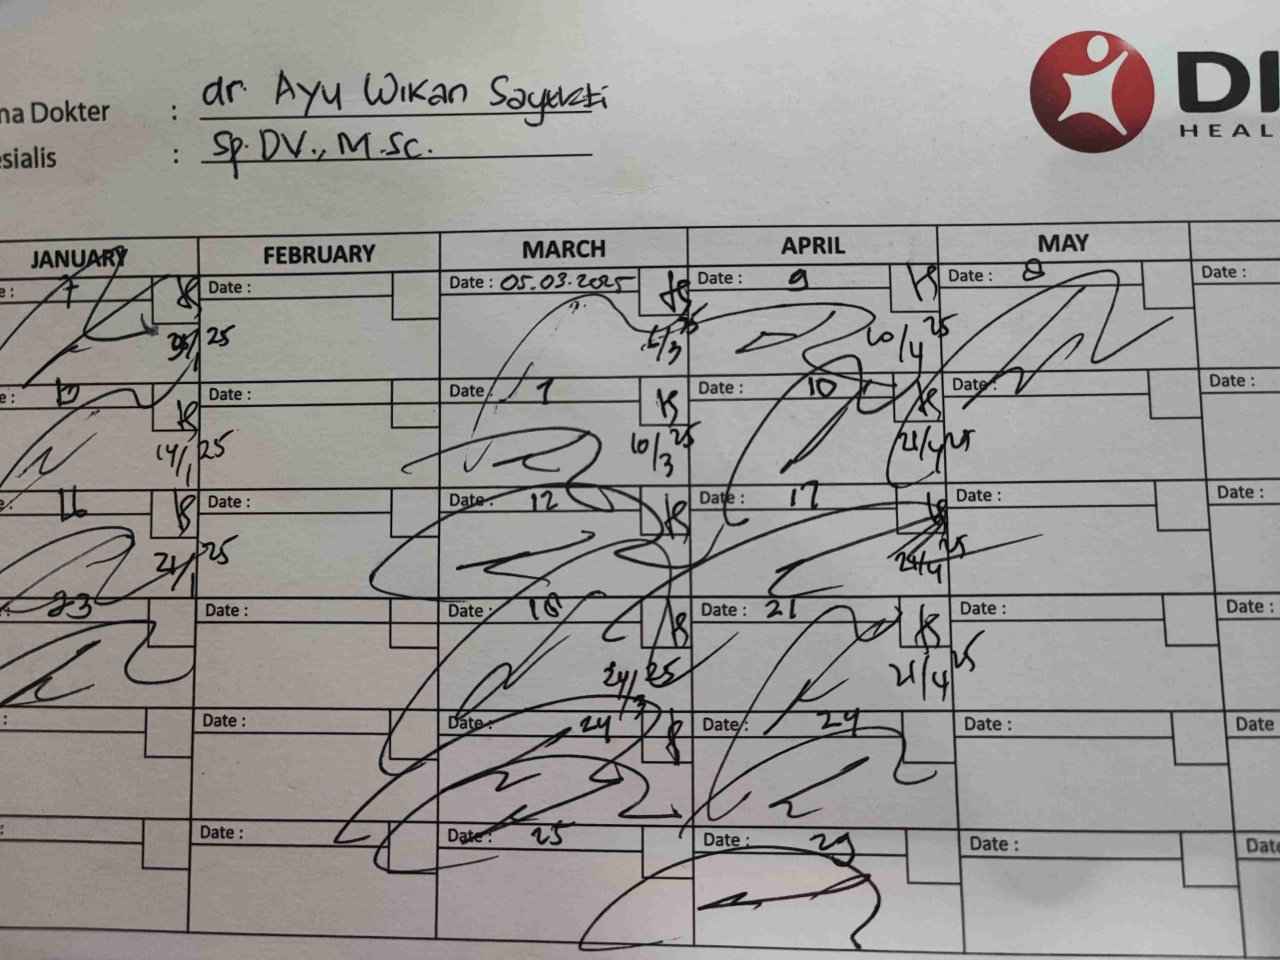 na Dokter : dr. Ayu Wikan Sayekti
esialis : Sp. DV., M.Sc.
DI
HEAL
JANUARY FEBRUARY MARCH APRIL MAY
e : 7 Date : Date : 05.03.2025 Date : 9 Date : 8 Date :
25 6/3 25 10/4 25
e : 13 Date : Date : 7 Date : 10 Date : Date :
14/1 25 10/3 25 21/4 25
e : 16 Date : Date : 12 Date : 17 Date : Date :
21/1 25 24/4 25
: 23 Date : Date : 18 Date : 21 Date : Date :
24/3 25 21/4 25
: Date : Date : 24 Date : 24 Date : Date
: Date : Date : 25 Date : 29 Date : Date